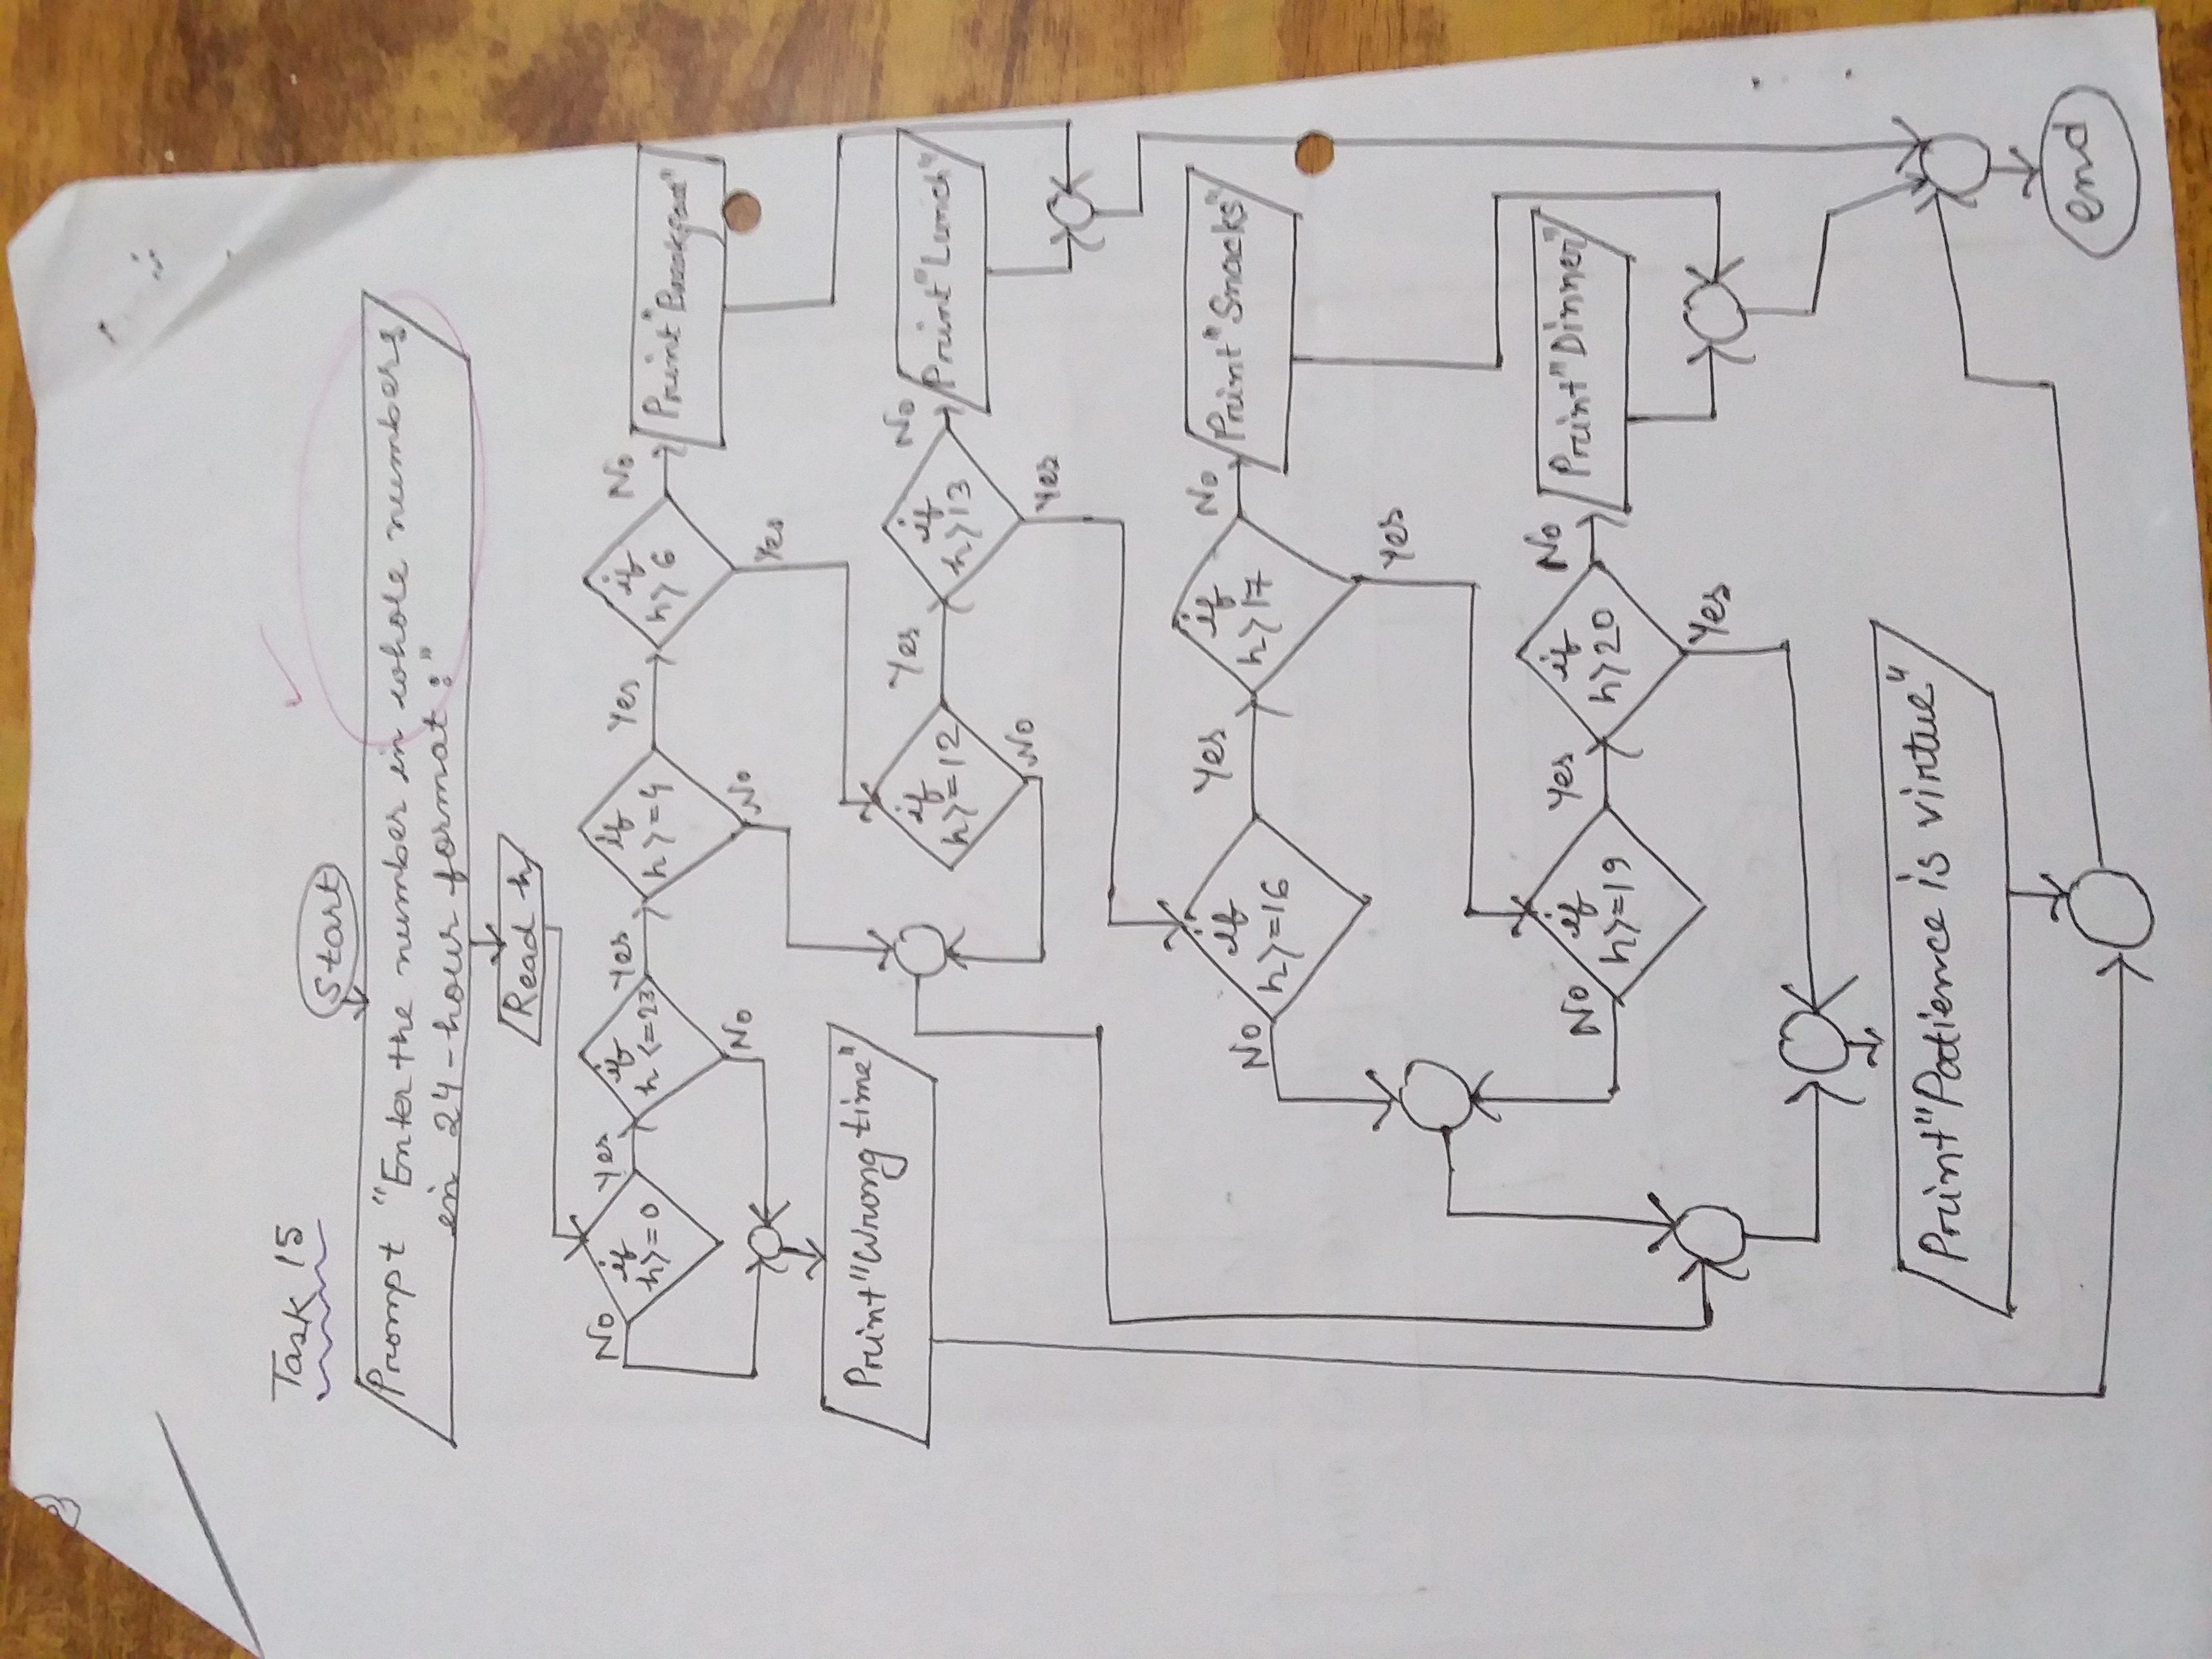 Task 15
Start
Prompt "Enter the number in whole numbers
in 24-hour format:"
Read h
No
if
h>=0
Yes
if
h<=23
Yes
if
h>=4
Yes
if
h>6
No
Print "Breakfast"
No
No
Yes
Print "Wrong time"
if
h>=12
Yes
if
h>13
No
Print "Lunch"
No
Yes
No
if
h>=16
Yes
if
h>17
No
Print "Snacks"
Yes
No
if
h>=19
Yes
if
h>20
No
Print "Dinner"
Yes
Print "Patience is virtue"
end